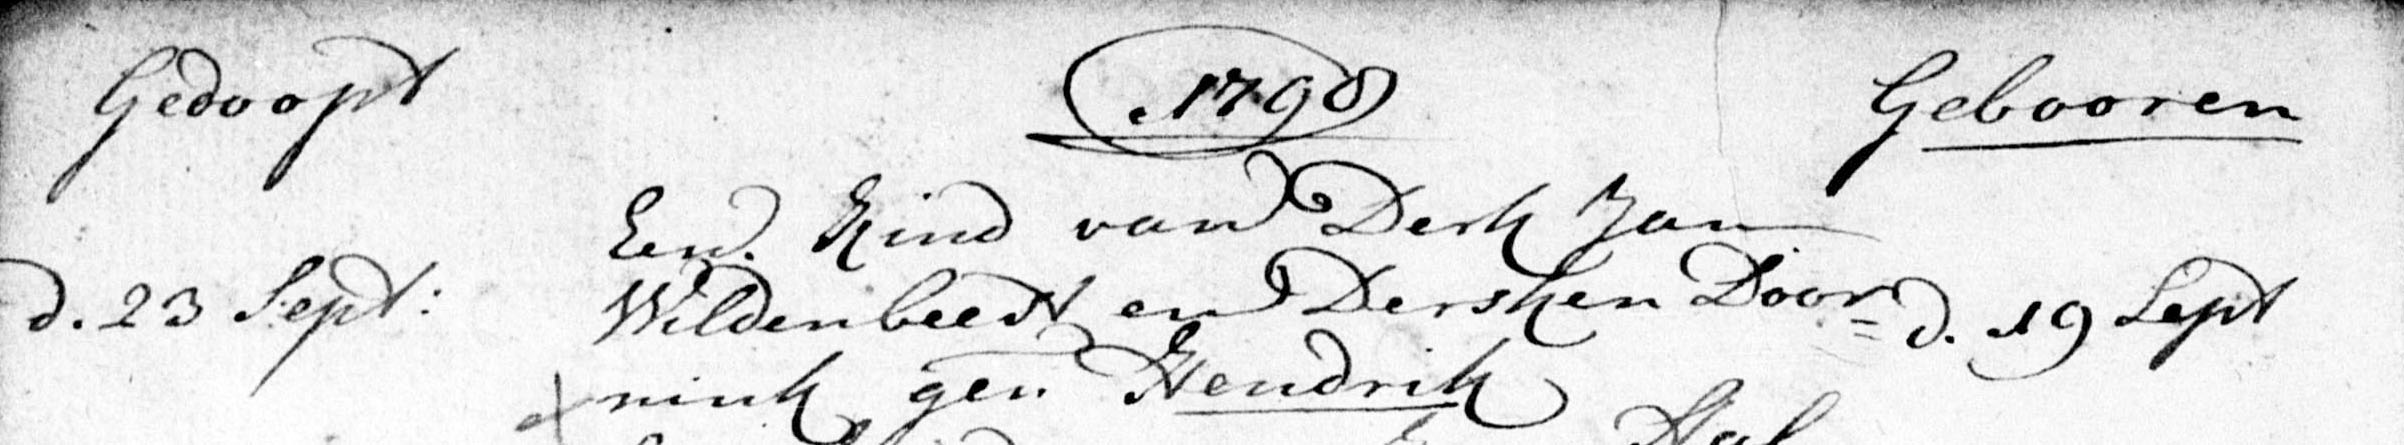 Gedoopt 1798 Gebooren
Een Kind van Derk Jan
d. 23 Sept: Wildenbeest en Dersken Door= d. 19 Sept
nink gen Hendrik